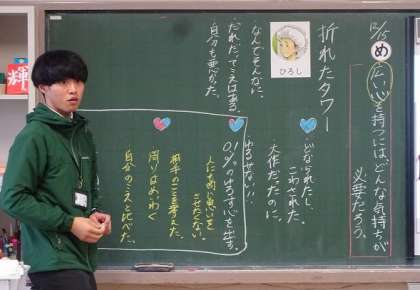 12/15
め 広い心を持つには、どんな気持ちが
必要だろう。
折れたタワー
ひろし
どなられたし、
こわされた
大作だったのに、
なんでそんなに、
だれだってミスはある。
自分も悪かった。
ゆるせない!
0%のゆるす心を出す。
人にも悪い思いを
させたくない
相手のことを考えた
周りはめいわく
自分のミスと比べた。
輝